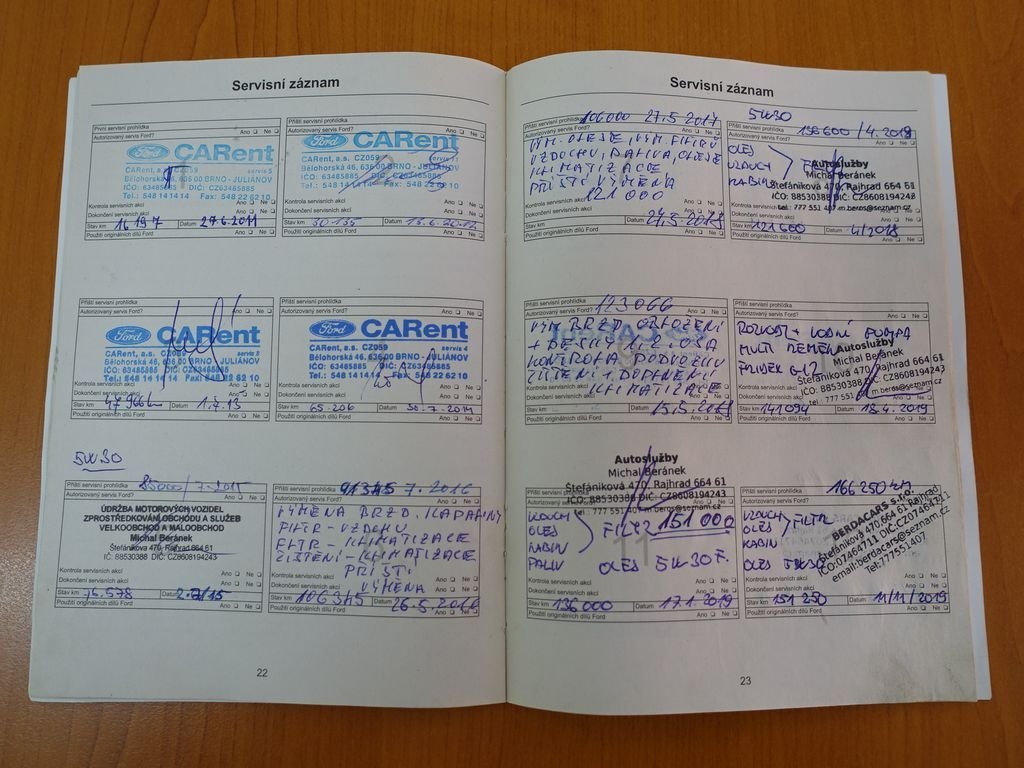 Servisní záznam
První servisní prohlídka
Autorizovaný servis Ford? Ano Ne
Ford CARent
CARent, a.s. CZ059 servis 5
Bělohorská 46, 636 00 BRNO - JULIÁNOV
IČO: 63485885 DIČ: CZ63485885
Tel.: 548 14 14 14 Fax: 548 22 62 10
Kontrola servisních akcí Ano Ne
Dokončení servisních akcí Ano Ne
Stav km 16 197 Datum 27.6.2011
Použití originálních dílů Ford Ano Ne
Příští servisní prohlídka
Autorizovaný servis Ford? Ano Ne
Ford CARent
CARent, a.s. CZ059 servis 11
Bělohorská 46, 636 00 BRNO - JULIÁNOV
IČO: 63485885 DIČ: CZ63485885
Tel.: 548 14 14 14 Fax: 548 22 62 10
Kontrola servisních akcí Ano Ne
Dokončení servisních akcí Ano Ne
Stav km 30 135 Datum 15.6.2012
Použití originálních dílů Ford Ano Ne
Příští servisní prohlídka
Autorizovaný servis Ford? Ano Ne
Ford CARent
CARent, a.s. CZ059
Bělohorská 46, 636 00 BRNO - JULIÁNOV
IČO: 63485885 DIČ: CZ63485885
Tel.: 548 14 14 14 Fax: 548 22 62 10
Kontrola servisních akcí Ano Ne
Dokončení servisních akcí Ano Ne
Stav km 47 966 Datum 1.7.13
Použití originálních dílů Ford Ano Ne
Příští servisní prohlídka
Autorizovaný servis Ford? Ano Ne
Ford CARent
CARent, a.s. CZ059 servis 4
Bělohorská 46, 636 00 BRNO - JULIÁNOV
IČO: 63485885 DIČ: CZ63485885
Tel.: 548 14 14 14 Fax: 548 22 62 10
Kontrola servisních akcí Ano Ne
Dokončení servisních akcí Ano Ne
Stav km 65 206 Datum 30.7.2014
Použití originálních dílů Ford Ano Ne
5W30
Příští servisní prohlídka 85000/7.2015
Autorizovaný servis Ford? Ano Ne
ÚDRŽBA MOTOROVÝCH VOZIDEL
ZPROSTŘEDKOVÁNÍ OBCHODU A SLUŽEB
VELKOOBCHOD A MALOOBCHOD
Michal Beránek
Štefánikova 470, Rajhrad 664 61
IČ: 88530388 DIČ: CZ8608194243
Kontrola servisních akcí Ano Ne
Dokončení servisních akcí Ano Ne
Stav km 75.578 Datum 2.7/15
Použití originálních dílů Ford Ano Ne
Příští servisní prohlídka 7.2016
Autorizovaný servis Ford? Ano Ne
VÝMĚNA BRZD. KAPALINY
FILTR - VZDUCHU
FILTR - KLIMATIZACE
ČIŠTĚNÍ - KLIMATIZACE
PŘÍŠTÍ
VÝMĚNA
Kontrola servisních akcí
Dokončení servisních akcí
Stav km 106.345 Datum 26.5.2016
Použití originálních dílů Ford Ano Ne
22
Servisní záznam
Příští servisní prohlídka 106000 27.5 2017
Autorizovaný servis Ford?
VÝM. OLEJE, VÝM. FILTRŮ
VZDUCHU, PALIVA, OLEJE
KLIMATIZACE
PŘÍŠTÍ VÝMĚNA
121 000
Kontrola servisních akcí
Dokončení servisních akcí
Stav km Datum
Použití originálních dílů Ford Ano Ne
5W30
Příští servisní prohlídka 136600 / 4.2019
Autorizovaný servis Ford? Ano Ne
OLEJ
VZDUCH
KABIN
Autoslužby
Michal Beránek
Štefánikova 470, Rajhrad 664 61
IČO: 88530388 DIČ: CZ8608194243
tel.: 777 551 407 m.beros@seznam.cz
Dokončení servisních akcí
Stav km 121 600 Datum 4/2018
Použití originálních dílů Ford Ano Ne
Příští servisní prohlídka 123066
Autorizovaný servis Ford?
VÝM BRZD. OBLOŽENÍ
+ DESKY
KONTROLA PODVOZKU
ČIŠTĚNÍ + DOPLNĚNÍ
KLIMATIZACE
Kontrola servisních akcí
Dokončení servisních akcí
Stav km Datum
Použití originálních dílů Ford Ano Ne
Příští servisní prohlídka
Autorizovaný servis Ford? Ano Ne
ROZVOD + VODNÍ PUMPA
MULTI ŘEMEN
Autoslužby
Michal Beránek
Štefánikova 470, Rajhrad 664 61
IČO: 88530388 DIČ: CZ8608194243
tel.: 777 551 407 m.beros@seznam.cz
Kontrola servisních akcí
Dokončení servisních akcí
Stav km 141094 Datum 18.4.2019
Použití originálních dílů Ford Ano Ne
Autoslužby
Michal Beránek
Štefánikova 470, Rajhrad 664 61
IČO: 88530388 DIČ: CZ8608194243
tel.: 777 551 407 m.beros@seznam.cz
VZDUCH
OLEJ
KABIN
PALIV
FILTR 151 000
OLEJ 5W30 F.
Kontrola servisních akcí Ano Ne
Dokončení servisních akcí Ano Ne
Stav km 136000 Datum 17.1.2019
Použití originálních dílů Ford Ano Ne
Příští servisní prohlídka 166 250 KM
Autorizovaný servis Ford?
VZDUCH
OLEJ
KABIN
FILTR
OLEJ 5W30
BERDACARS s.r.o.
Štefánikova 470, 664 61 Rajhrad
IČO:07464711 DIČ:CZ07464711
email:berdacars@seznam.cz
Tel:777551407
Kontrola servisních akcí
Dokončení servisních akcí Ano Ne
Stav km 151 250 Datum 11/11/2019
Použití originálních dílů Ford Ano Ne
23